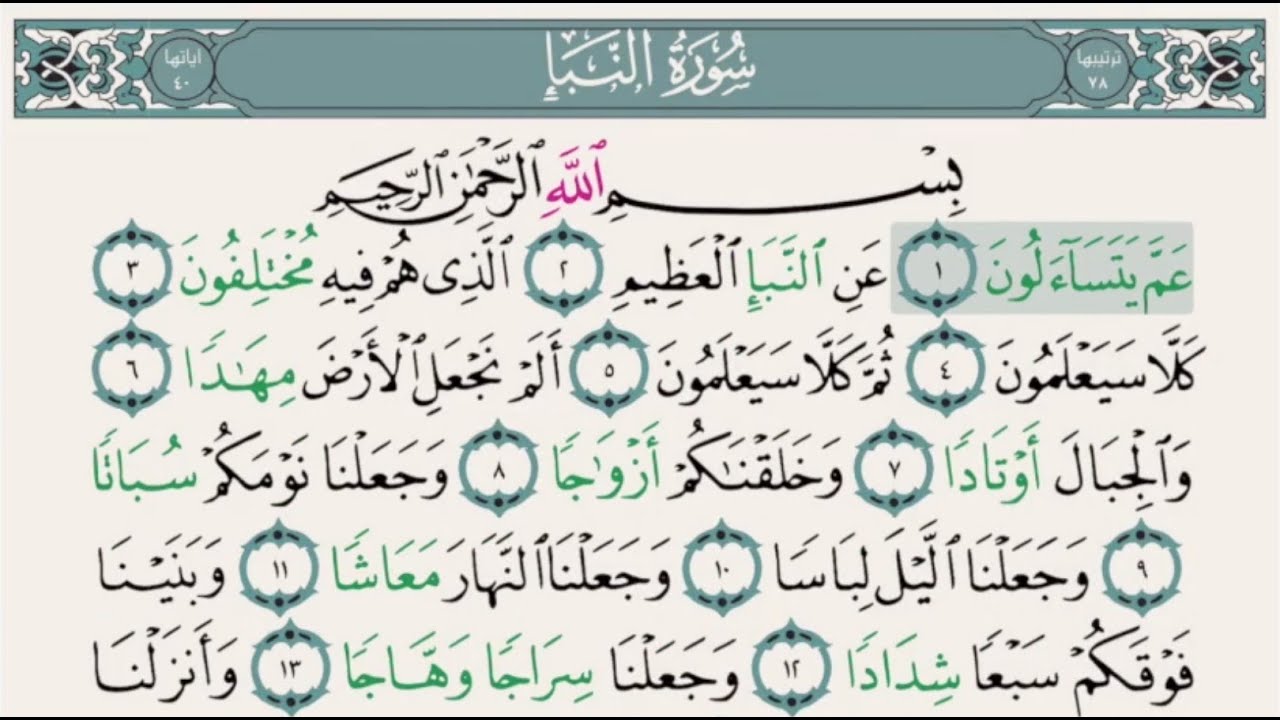 ترتيبها ٧٨
سُورَةُ النَّبَإِ
اياتها ٤٠
بِسْمِ ٱللَّهِ ٱلرَّحْمَٰنِ ٱلرَّحِيمِ
عَمَّ يَتَسَآءَلُونَ ١ عَنِ ٱلنَّبَإِ ٱلْعَظِيمِ ٢ ٱلَّذِى هُمْ فِيهِ مُخْتَلِفُونَ ٣
كَلَّا سَيَعْلَمُونَ ٤ ثُمَّ كَلَّا سَيَعْلَمُونَ ٥ أَلَمْ نَجْعَلِ ٱلْأَرْضَ مِهَٰدًا ٦
وَٱلْجِبَالَ أَوْتَادًا ٧ وَخَلَقْنَٰكُمْ أَزْوَٰجًا ٨ وَجَعَلْنَا نَوْمَكُمْ سُبَاتًا
٩ وَجَعَلْنَا ٱلَّيْلَ لِبَاسًا ١٠ وَجَعَلْنَا ٱلنَّهَارَ مَعَاشًا ١١ وَبَنَيْنَا
فَوْقَكُمْ سَبْعًا شِدَادًا ١٢ وَجَعَلْنَا سِرَاجًا وَهَّاجًا ١٣ وَأَنزَلْنَا